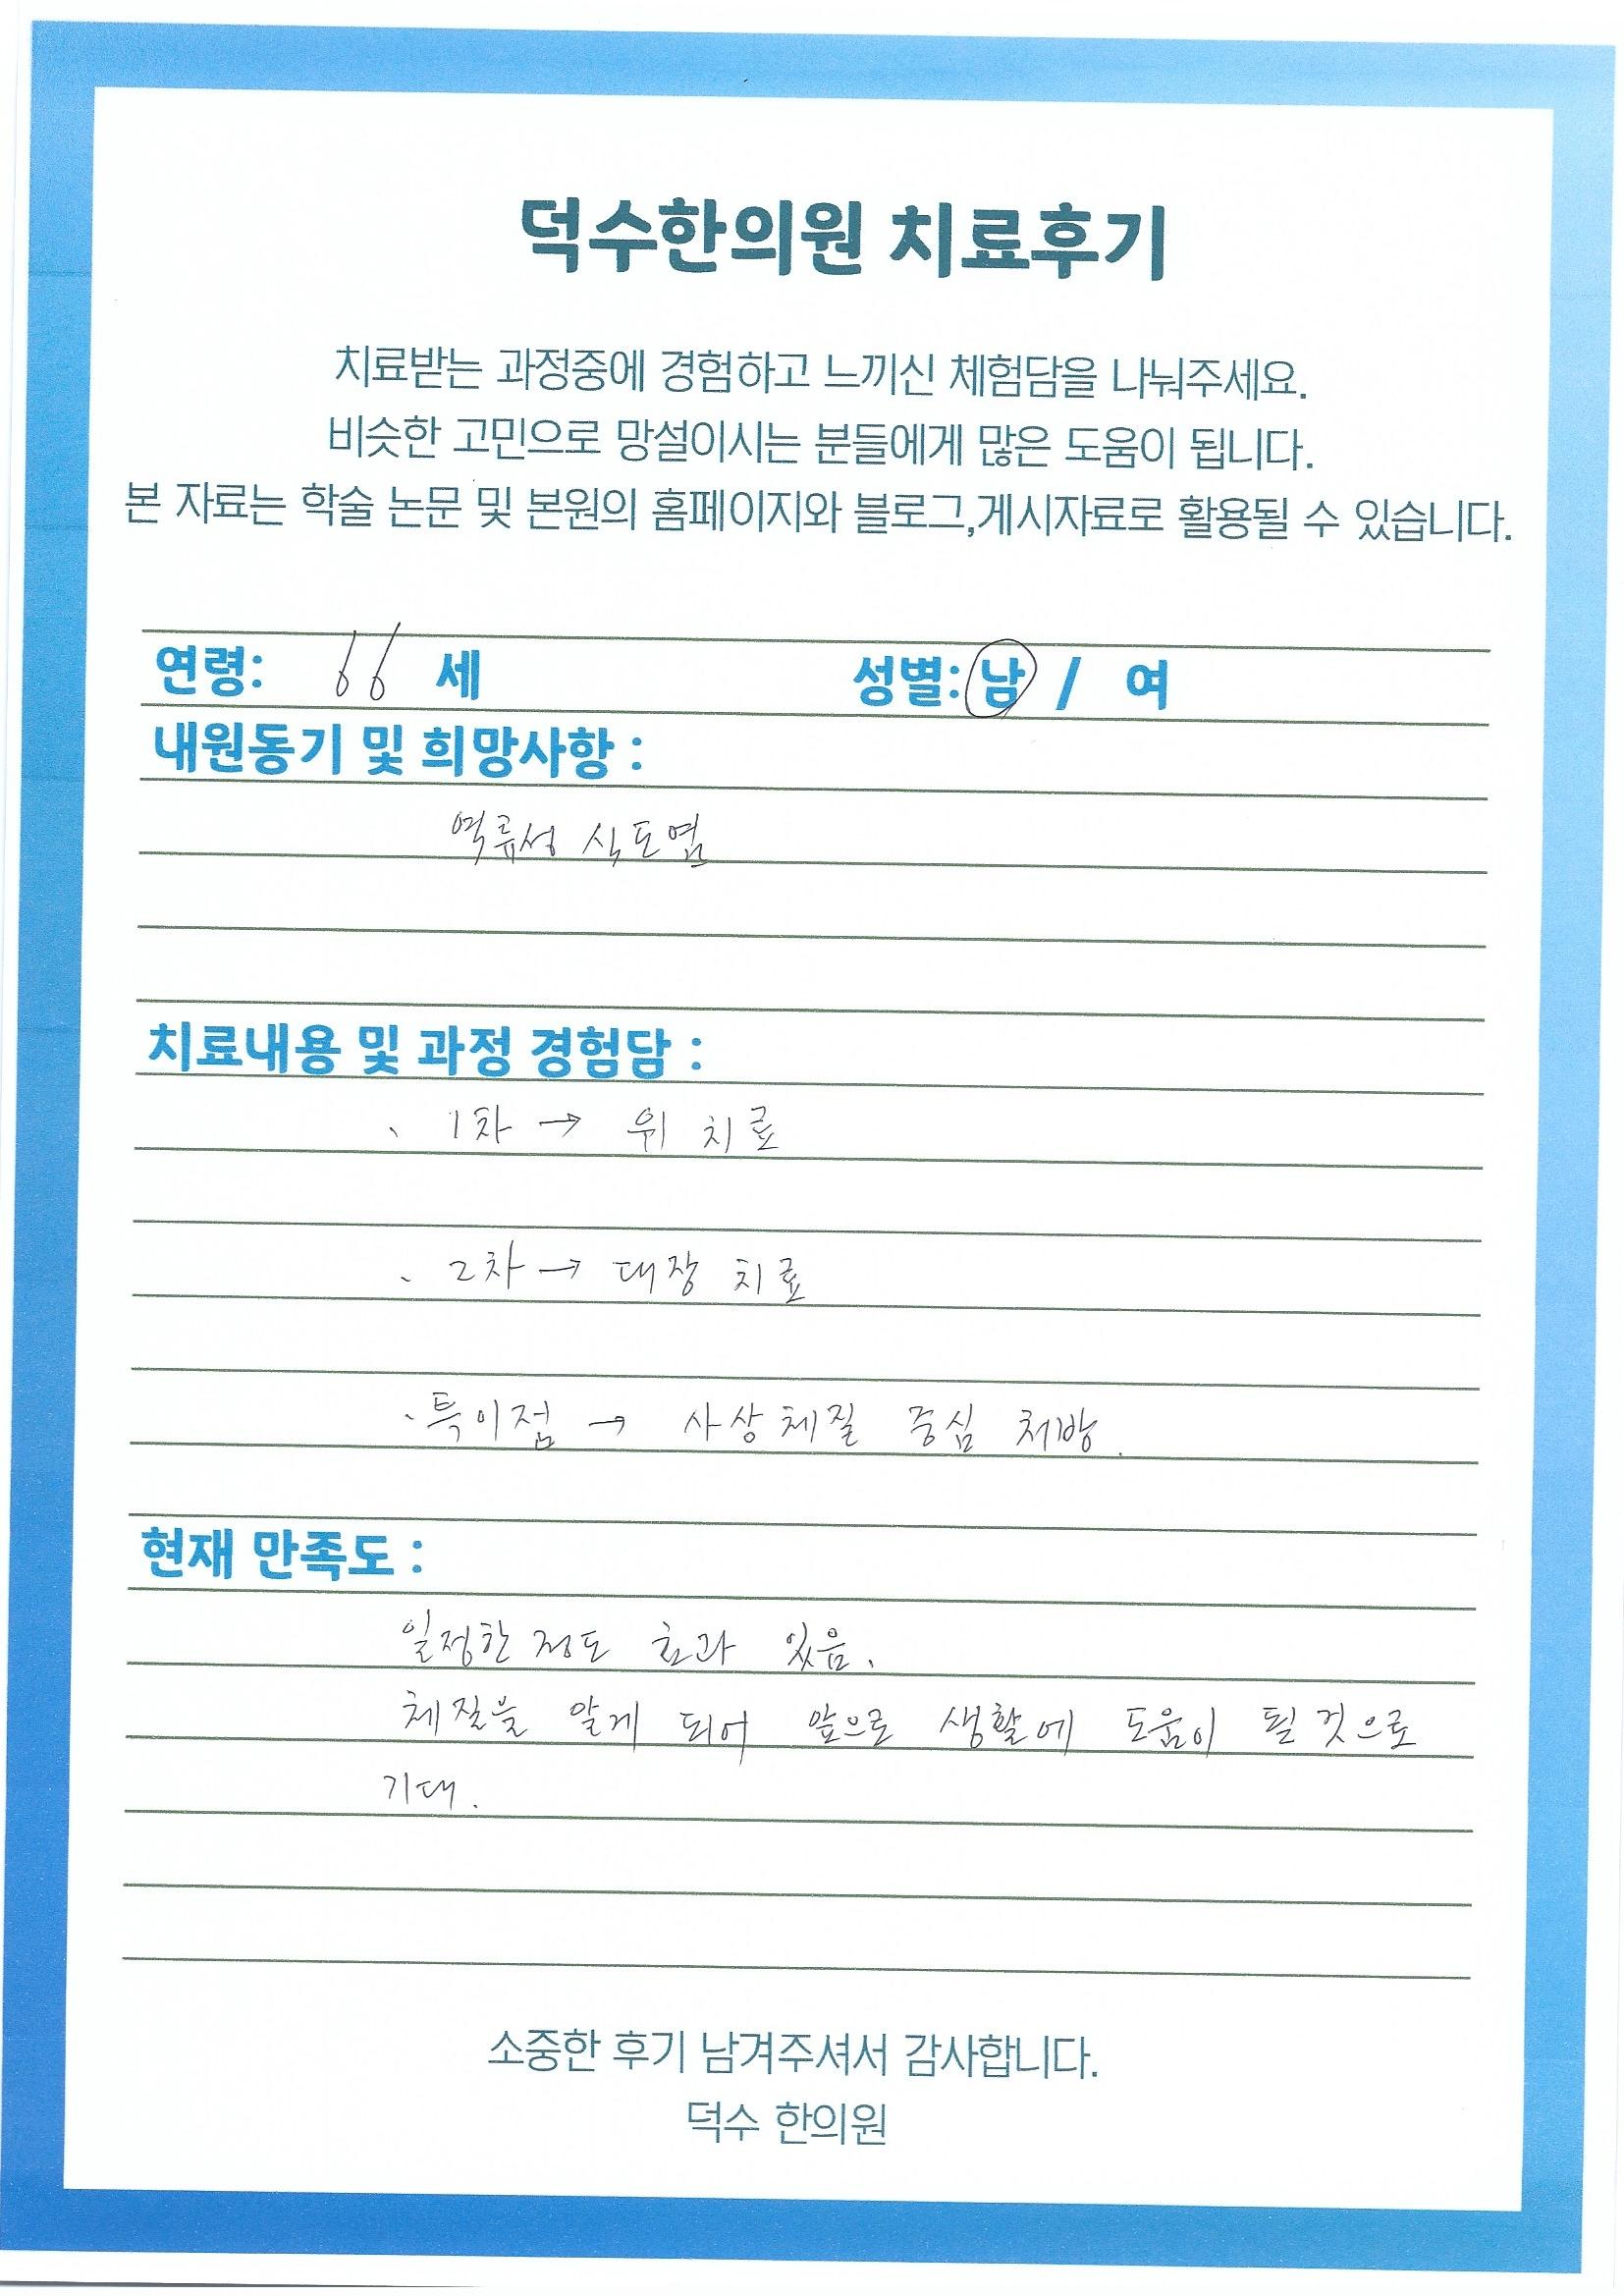 덕수한의원 치료후기
치료받는 과정중에 경험하고 느끼신 체험담을 나눠주세요.
비슷한 고민으로 망설이시는 분들에게 많은 도움이 됩니다.
본 자료는 학술 논문 및 본원의 홈페이지와 블로그,게시자료로 활용될 수 있습니다.
연령: 66 세 성별: 남 / 여
내원동기 및 희망사항 :
역류성 식도염
치료내용 및 과정 경험담 :
、 1차 → 위 치료
、 2차 → 대장 치료
、특이점 → 사상체질 중심 처방.
현재 만족도 :
일정한 정도 효과 있음.
체질을 알게 되어 앞으로 생활에 도움이 될 것으로
기대.
소중한 후기 남겨주셔서 감사합니다.
덕수 한의원